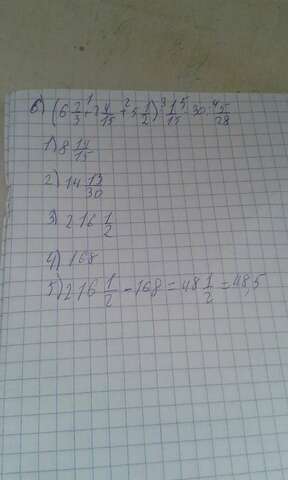 б) (6 2/3 +¹ 2 4/15 +² 5 1/2) :³ 1/15 -⁵ 30 :⁴ 5/28
1) 8 14/15
2) 14 13/30
3) 216 1/2
4) 168
5) 216 1/2 - 168 = 48 1/2 = 48,5